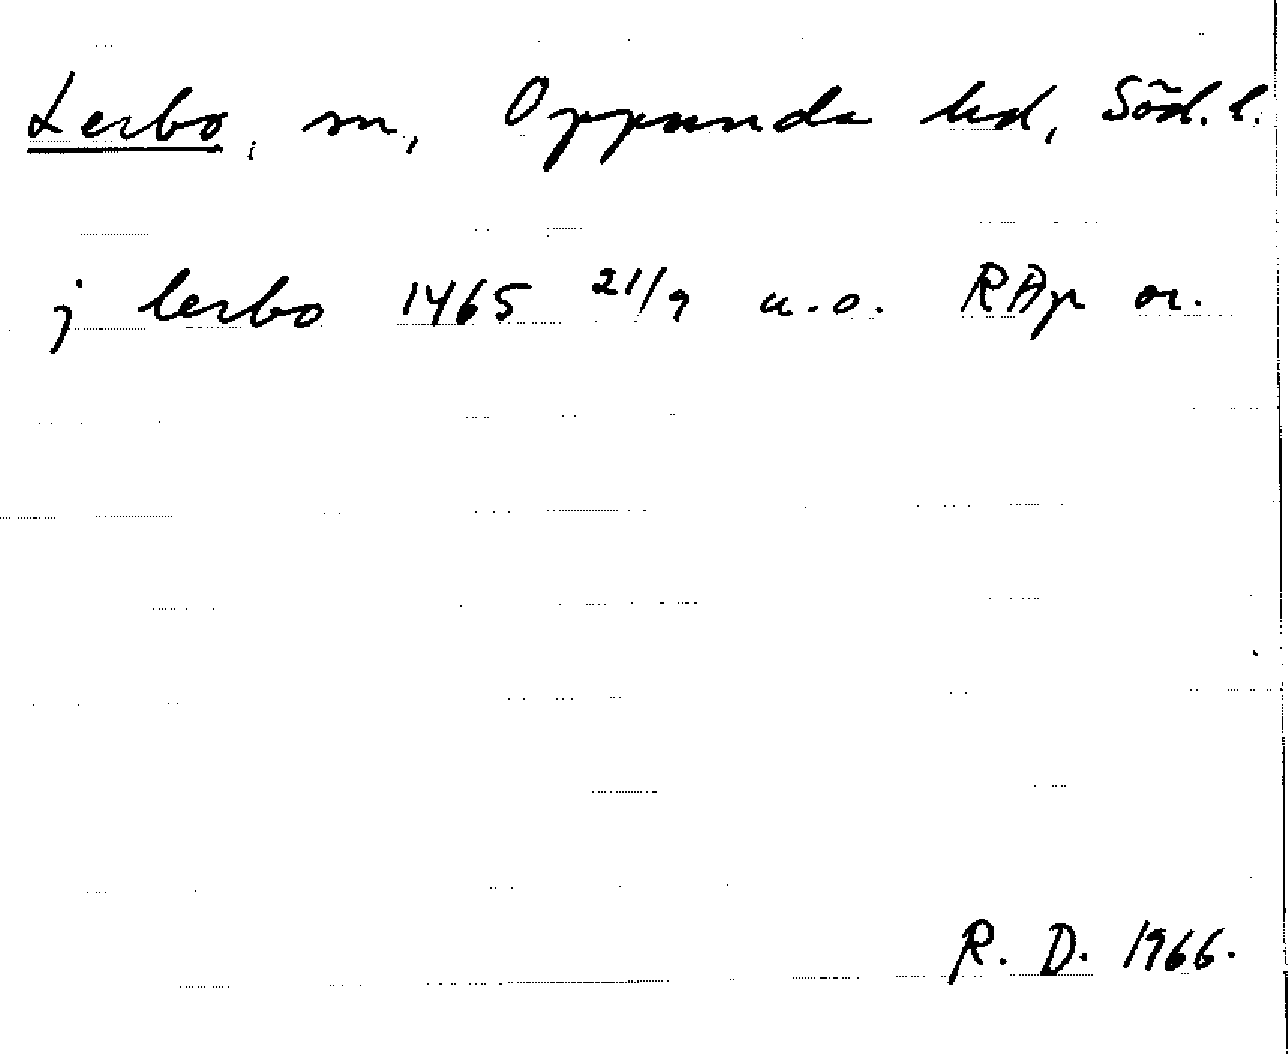 Lerbo, sn, Oppunda hd, Söd. l.
j lerbo 1465 21/9 u.o. RAp or.
R. D. 1966.